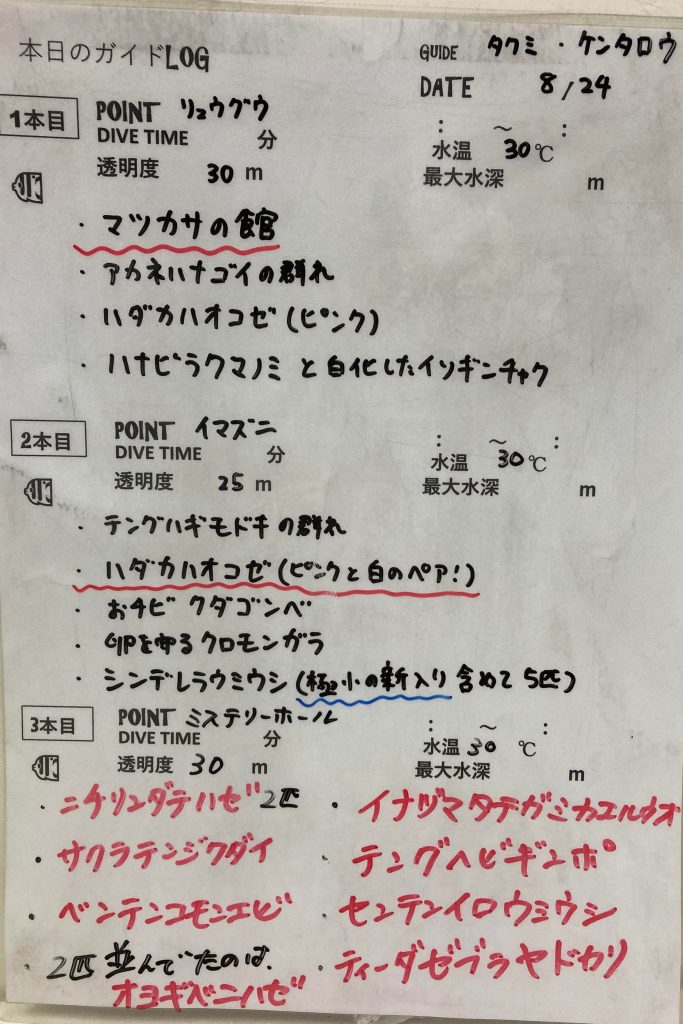 本日のガイドLOG
GUIDE タクミ・ケンタロウ
DATE 8/24
1本目 POINT リュウグウ
DIVE TIME 分 : ～ :
透明度 30 m 水温 30℃
最大水深 m
・マツカサの館
・アカネハナゴイの群れ
・ハダカハオコゼ(ピンク)
・ハナビラクマノミと白化したイソギンチャク
2本目 POINT イマズニ
DIVE TIME 分 : ～ :
透明度 25 m 水温 30℃
最大水深 m
・テングハギモドキの群れ
・ハダカハオコゼ(ピンクと白のペア!)
・おチビクダゴンベ
・卵を守るクロモンガラ
・シンデレラウミウシ(極小の新入り含めて5匹)
3本目 POINT ミステリーホール
DIVE TIME 分 : ～ :
透明度 30 m 水温 30 ℃
最大水深 m
・ニチリンダテハゼ 2匹
・サクラテンジクダイ
・ベンテンコモンエビ
・2匹並んでたのは、
オヨギベニハゼ
・イナヅマタテガミカエルウオ
・テングヘビギンポ
・センテンイロウミウシ
・ティーダゼブラヤドカリ